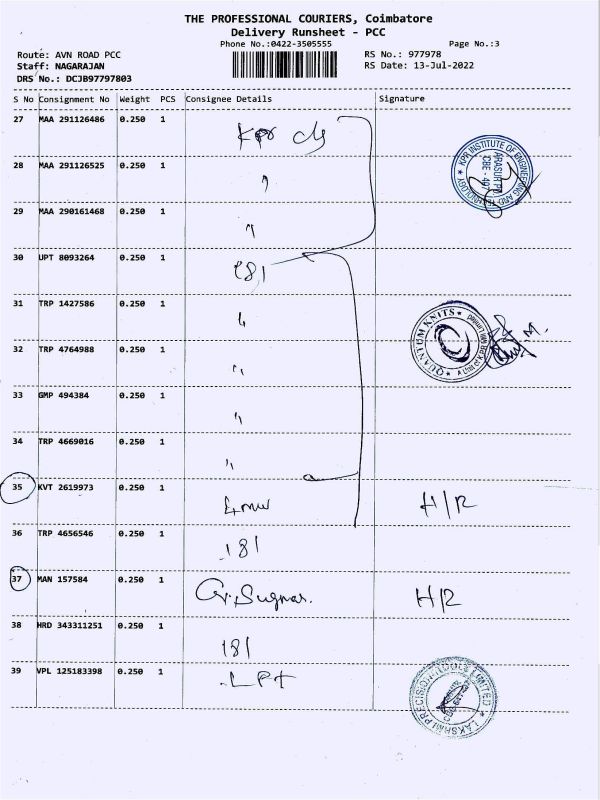 THE PROFESSIONAL COURIERS, Coimbatore
Delivery Runsheet - PCC
Phone No.:0422-3505555
Page No.:3
Route: AVN ROAD PCC
RS No.: 977978
Staff: NAGARAJAN
RS Date: 13-Jul-2022
DRS No.: DCJB97797803
S No Consignment No Weight PCS Consignee Details Signature
27 MAA 291126486 0.250 1 KPR clg
28 MAA 291126525 0.250 1 "
29 MAA 290161468 0.250 1 "
KPR INSTITUTE OF ENGINEERING AND TECHNOLOGY
30 UPT 8093264 0.250 1 181
31 TRP 1427586 0.250 1 "
QUANTUM KNITS
32 TRP 4764988 0.250 1 "
33 GMP 494384 0.250 1 "
34 TRP 4669016 0.250 1 "
35 KVT 2619973 0.250 1 H/R
36 TRP 4656546 0.250 1 181
37 MAN 157584 0.250 1 H/R
38 HRD 343311251 0.250 1 181
39 VPL 125183398 0.250 1 LPT
LAKSHMI PRECISION TOOLS LIMITED